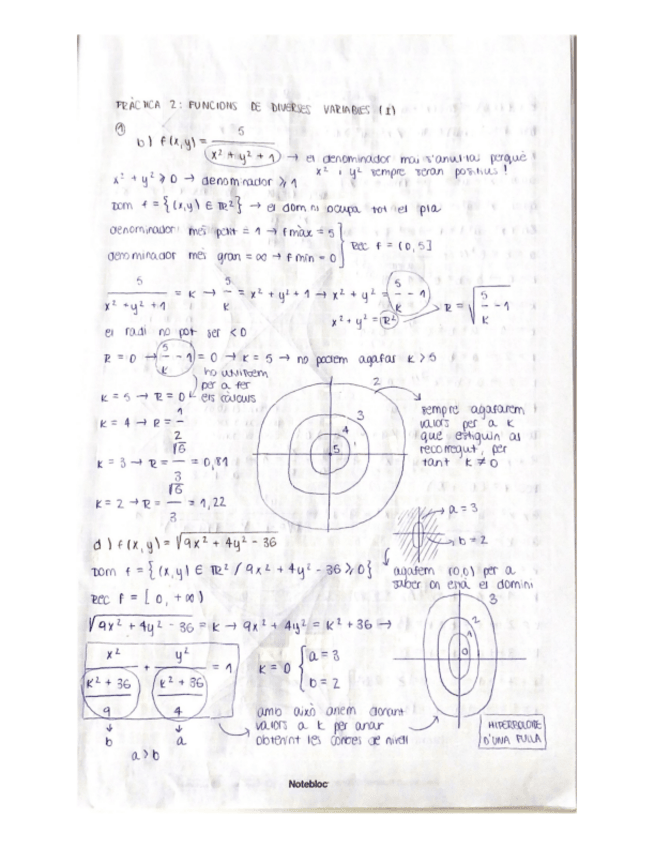 PRÀCTICA 2: FUNCIONS DE DIVERSES VARIABLES (I)
①
b) f(x,y) = 5 / (x² + y² + 1) → el denominador mai s'anul·las perquè
x² i y² sempre seran positius!
x² + y² ≥ 0 → denominador ≥ 1
Dom f = {(x,y) ∈ ℝ²} → el domini ocupa tot el pla
denominador més petit = 1 → f màx = 5
denominador més gran = ∞ → f min = 0
Rec f = (0, 5]
5 / (x² + y² + 1) = K → 5/K = x² + y² + 1 → x² + y² = 5/K - 1
x² + y² = R²
R = √(5/K - 1)
el radi no pot ser < 0
R = 0 → 5/K - 1 = 0 → K = 5 → no podem agafar K > 5
ho utilitzem
per a fer
els càlculs
K = 5 → R = 0
K = 4 → R = 1/2
K = 3 → R = √6/3 = 0,81
K = 2 → R = √6/3 = 1,22
2
3
4
5
1
sempre agafarem
valors per a K
que estiguin al
recorregut, per
tant K ≠ 0
d) f(x,y) = √(9x² + 4y² - 36)
a = 3
b = 2
Dom f = {(x,y) ∈ ℝ² / 9x² + 4y² - 36 ≥ 0}
agafem (0,0) per a
saber on està el domini
Rec f = [0, +∞)
√(9x² + 4y² - 36) = K → 9x² + 4y² = K² + 36 →
x² / ((K² + 36)/9) + y² / ((K² + 36)/4) = 1
b
a
a > b
K = 0 { a = 3
b = 2
3
2
1
0
amb això anem donant
valors a K per anar
obtenint les corbes de nivell
HIPERBOLOIDE
D'UNA FULLA
Notebloc